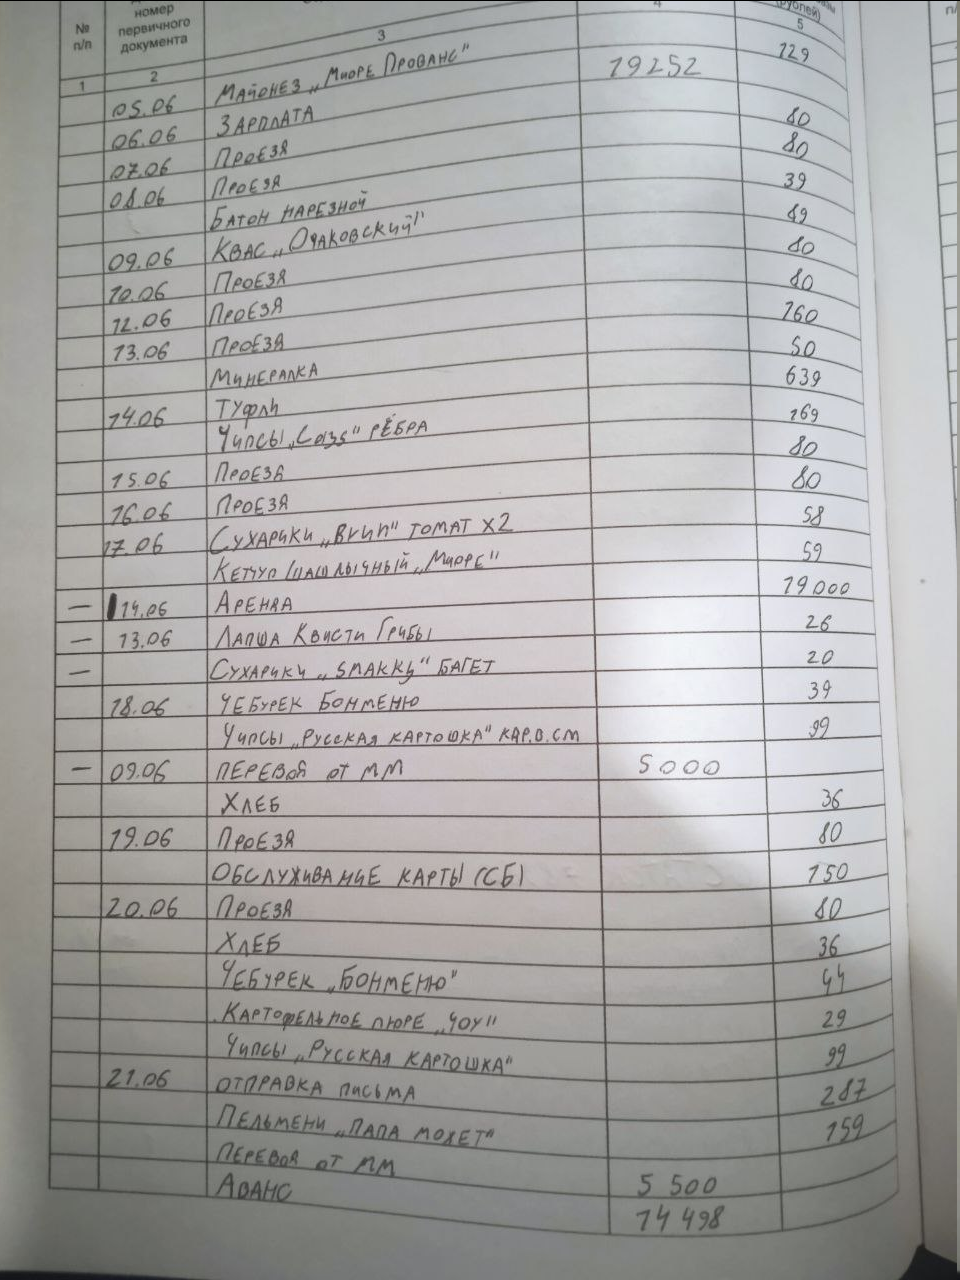 № п/п номер первичного документа (рублей)
1 2 3 4 5
05.06 Майонез „Миоре Прованс" 129
06.06 Зарплата 19252
07.06 Проезд 80
08.06 Проезд 80
Батон нарезной 39
09.06 Квас „Очаковский" 89
10.06 Проезд 80
12.06 Проезд 80
13.06 Проезд 160
Минералка 50
14.06 Туфли 639
Чипсы „Lays" рёбра 169
15.06 Проезд 80
16.06 Проезд 80
17.06 Сухарики „Вгип" томат х2 58
Кетчуп шашлычный „Миоре" 59
— 14.06 Аренда 19000
— 13.06 Лапша Квисти Грибы 26
— Сухарики „Smakky" багет 20
18.06 Чебурек Бонменю 39
Чипсы „Русская картошка" кар.в.см 99
— 09.06 Перевод от ММ 5000
Хлеб 36
19.06 Проезд 80
Обслуживание карты (СБ) 150
20.06 Проезд 80
Хлеб 36
Чебурек „Бонменю" 44
Картофельное пюре „Чоу" 29
Чипсы „Русская картошка" 99
21.06 Отправка письма 287
Пельмени „Папа может" 159
Перевод от ММ 5 500
Аванс 14 498